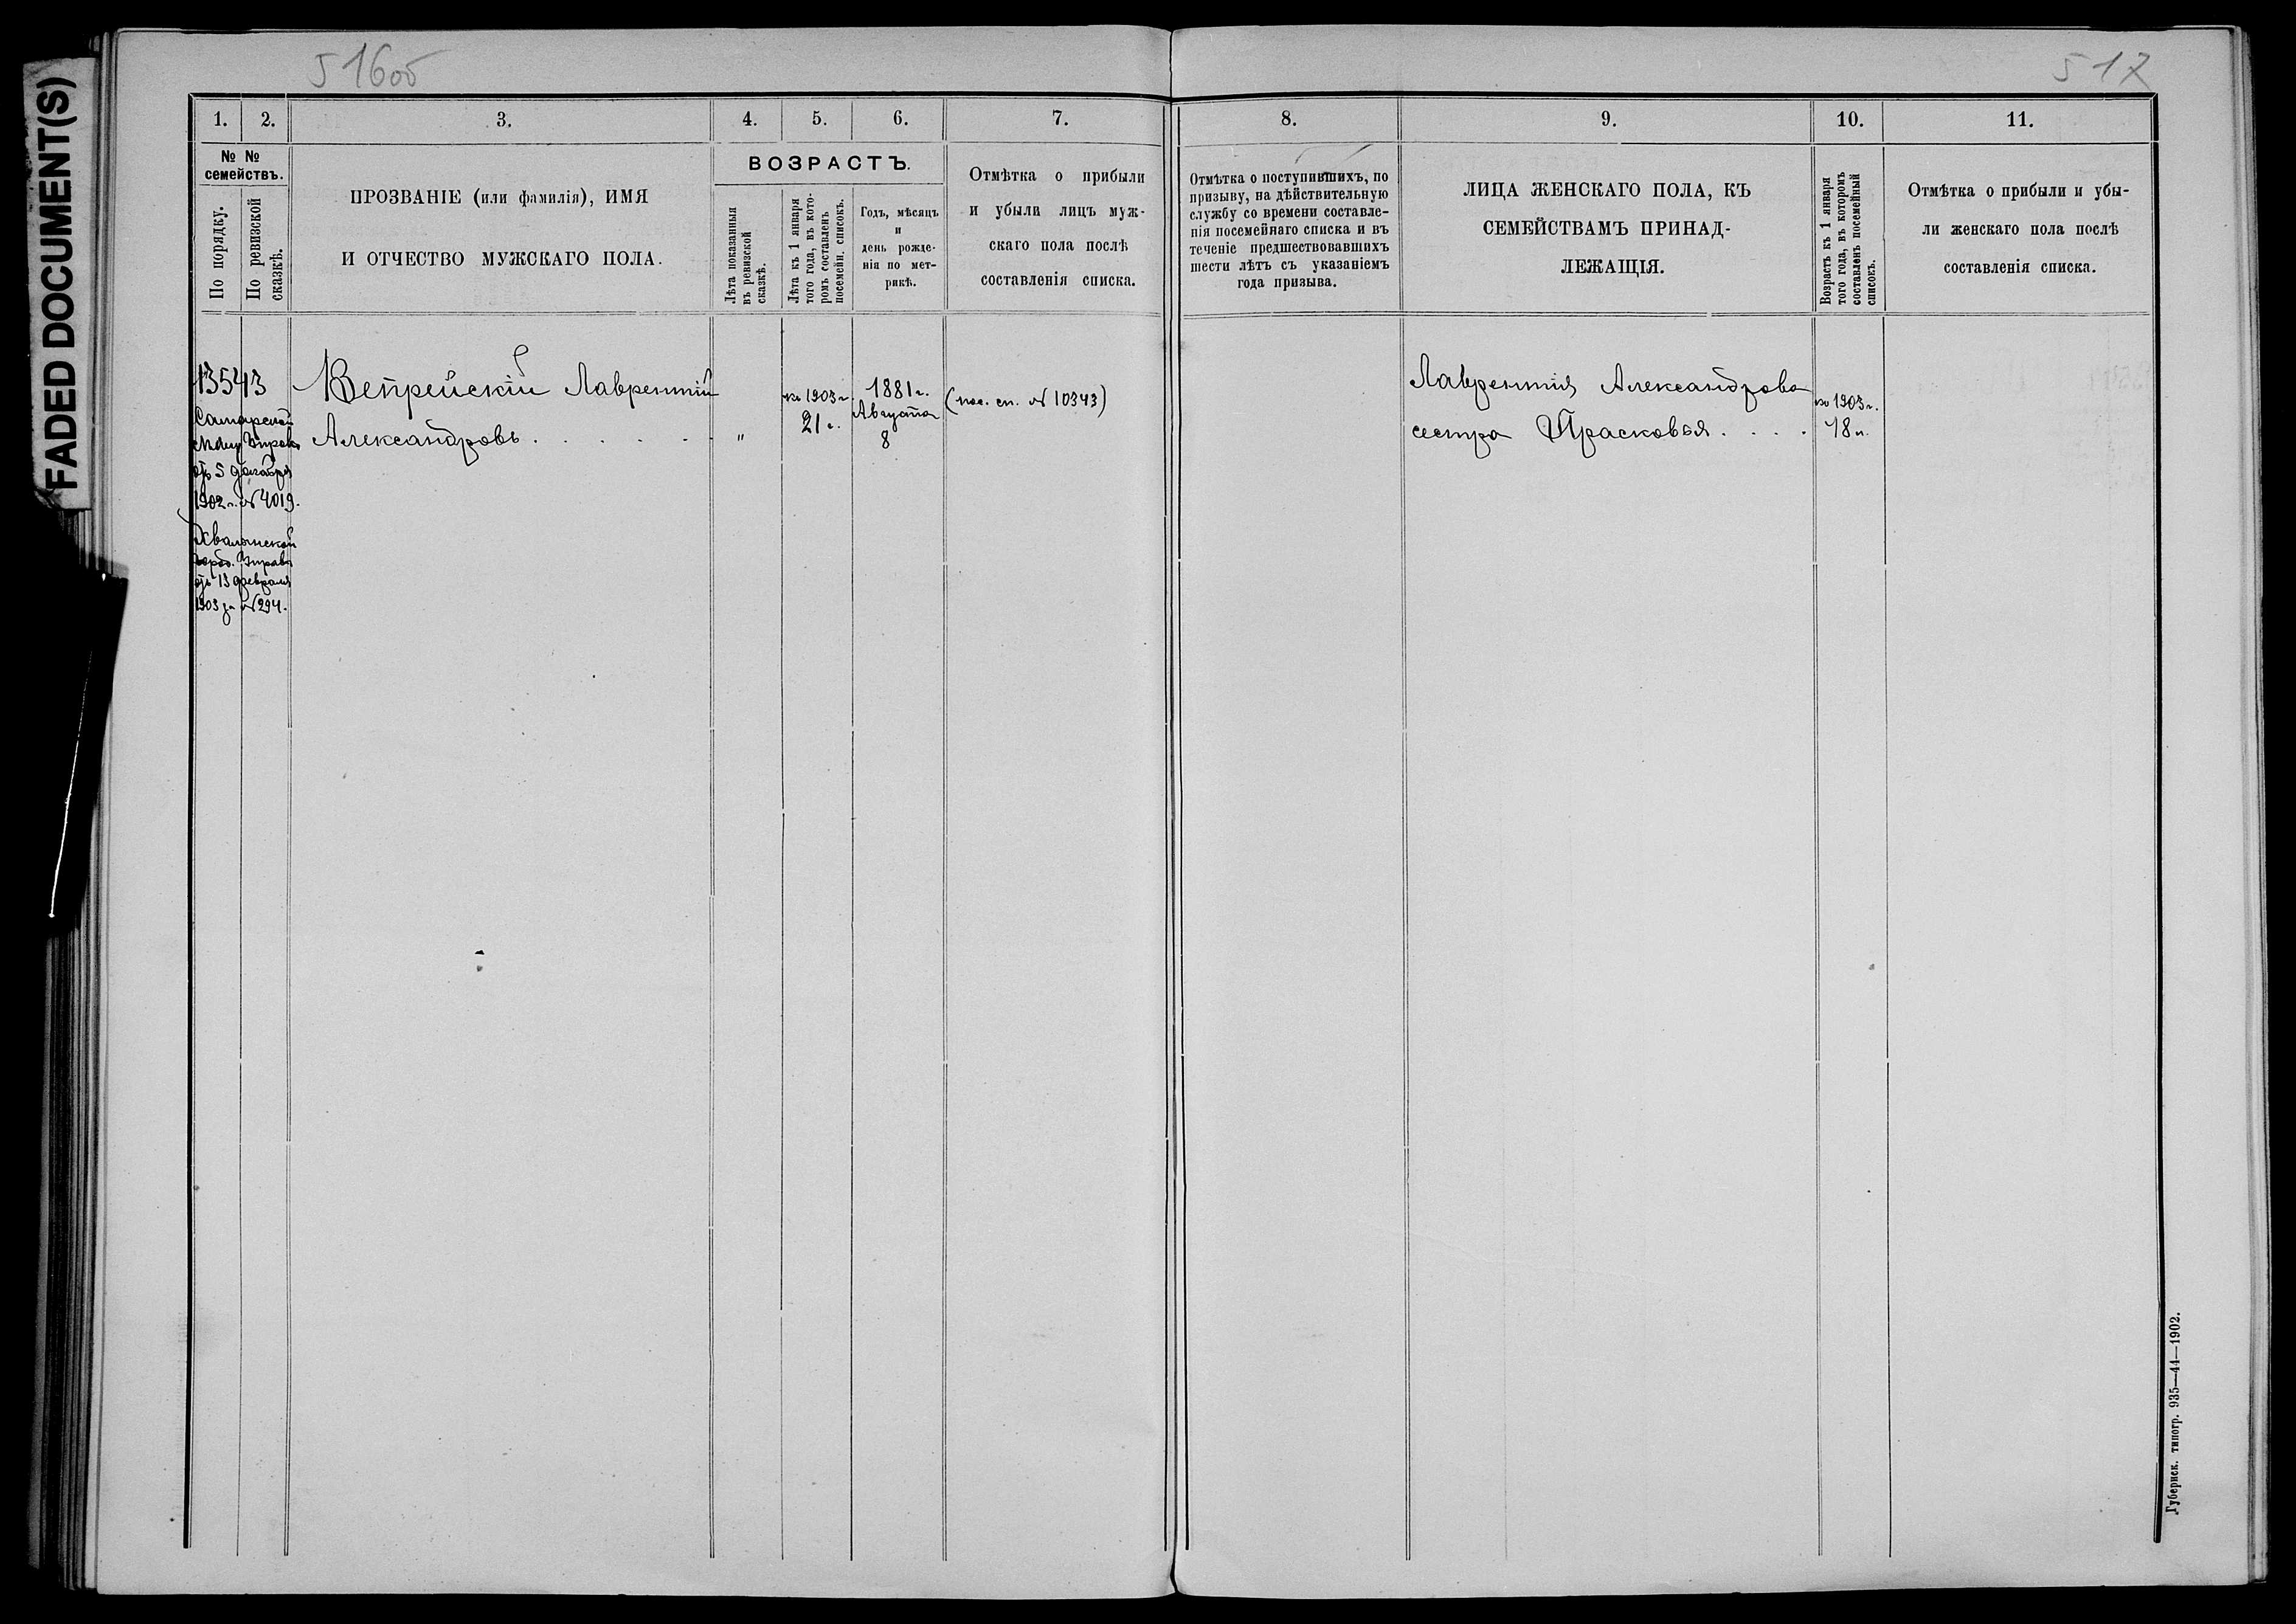 FADED DOCUMENT(S)
516об
517
1. 2. 3. 4. 5. 6. 7. 8. 9. 10. 11.
№ №
семействъ.
По порядку.
По ревизской
сказкѣ.
ПРОЗВАНІЕ (или фамилія), ИМЯ
И ОТЧЕСТВО МУЖСКАГО ПОЛА.
ВОЗРАСТЪ.
Лѣта показанныя
въ ревизской
сказкѣ.
Лѣта къ 1 января
того года, въ кото-
ромъ составленъ
посемейн. списокъ.
Годъ, мѣсяцъ
и
день рожде-
нія по мет-
рикѣ.
Отмѣтка о прибыли
и убыли лицъ муж-
скаго пола послѣ
составленія списка.
Отмѣтка о поступившихъ, по
призыву, на дѣйствительную
службу со времени составле-
нія посемейнаго списка и въ
теченіе предшествовавшихъ
шести лѣтъ съ указаніемъ
года призыва.
ЛИЦА ЖЕНСКАГО ПОЛА, КЪ
СЕМЕЙСТВАМЪ ПРИНАД-
ЛЕЖАЩІЯ.
Возрастъ къ 1 января
того года, въ которомъ
составленъ посемейный
списокъ.
Отмѣтка о прибыли и убы-
ли женскаго пола послѣ
составленія списка.
13543
Самарской
Мѣщ. Управы
отъ 5 декабря
1902 г. № 4019.
Хвалынской
Город. Управы
отъ 13 февраля
1903 г. № 294.
Вепрейскій Лаврентій
Александровъ . . . . .
"
къ 1903 г.
21 г.
1881 г.
Августа
8
(пос. сп. № 10343)
Лаврентія Александрова
сестра Прасковья . . . .
къ 1903 г.
18 л.
Губернск. типогр. 935—44—1902.